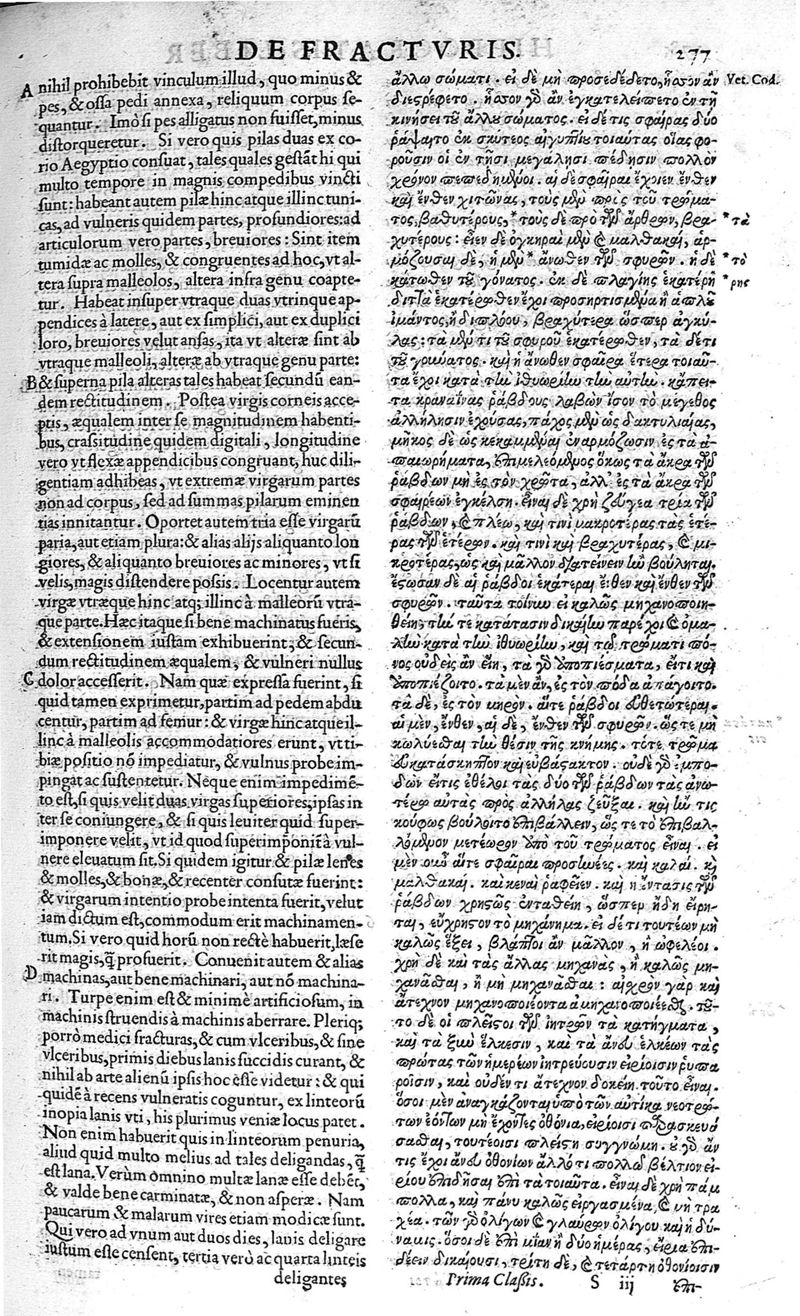 DE FRACTVRIS.
277
A nihil prohibebit vinculum illud, quo minus &
pes, & ossa pedi annexa, reliquum corpus se-
quantur. Imò si pes alligatus non fuisset, minus
distorqueretur. Si vero quis pilas duas ex co-
rio Aegyptio consuat, tales quales gestāt hi qui
multo tempore in magnis compedibus vincti
sunt: habeant autem pilæ hinc atque illinc tuni-
cas, ad vulneris quidem partes, profundiores: ad
articulorum vero partes, breuiores: Sint item
tumidæ ac molles, & congruentes ad hoc, vt al-
tera supra malleolos, altera infra genu coapte-
tur. Habeat insuper vtraque duas vtrinque ap-
pendices à latere, aut ex simplici, aut ex duplici
loro, breuiores velut ansas, ita vt alteræ sint ab
vtraque malleoli, alteræ ab vtraque genu parte:
B & superna pila alteras tales habeat secundū ean-
dem rectitudinem. Postea virgis corneis acce-
ptis, æqualem inter se magnitudinem habenti-
bus, crassitudine quidem digitali, longitudine
vero vt flexæ appendicibus congruant, huc dili-
gentiam adhibeas, vt extremæ virgarum partes
non ad corpus, sed ad summas pilarum eminen
tias innitantur. Oportet autem tria esse virgarū
paria, aut etiam plura: & alias alijs aliquanto lon
giores, & aliquanto breuiores ac minores, vt si
velis, magis distendere possis. Locentur autem
virgæ vtræque hinc atq; illinc à malleorū vtra-
que parte. Hæc itaque si bene machinatus fueris,
& extensionem iustam exhibuerint, & secun-
dum rectitudinem æqualem, & vulneri nullus
C dolor accesserit. Nam quæ expressa fuerint, si
quid tamen exprimetur, partim ad pedem abdu
centur, partim ad femur: & virgæ hinc atque il-
linc à malleolis accommodatiores erunt, vt ti-
biæ positio nō impediatur, & vulnus probe im-
pingat ac sustentetur. Neque enim impedimē-
to est, si quis velit duas virgas superiores, ipsas in
ter se coniungere, & si quis leuiter quid super-
imponere velit, vt id quod superimponit à vul-
nere eleuatum sit. Si quidem igitur & pilæ lenes
& molles, & bonæ, & recenter consutæ fuerint:
& virgarum intentio probe intenta fuerit, velut
iam dictum est, commodum erit machinamen-
tum. Si vero quid horū non rectè habuerit, læse
rit magis, q̄ profuerit. Conuenit autem & alias
D machinas, aut bene machinari, aut nō machina-
ri. Turpe enim est & minimè artificiosum, in
machinis struendis à machinis aberrare. Pleriq;
porrò medici fracturas, & cum vlceribus, & sine
vlceribus, primis diebus lanis succidis curant, &
nihil ab arte alienū ipsis hoc esse videtur: & qui
quidē à recens vulneratis coguntur, ex linteorū
inopia lanis vti, his plurimus veniæ locus patet.
Non enim habuerit quis in linteorum penuria,
aliud quid multo melius ad tales deligandas, q̄
est lana. Verùm omnino multæ lanæ esse debēt,
& valde bene carminatæ, & non asperæ. Nam
paucarum & malarum vires etiam modicæ sunt.
Qui vero ad vnum aut duos dies, lanis deligare
iustum esse censent, tertia verò ac quarta linteis
deligantes
ἄλλῳ σώματι. εἰ δὲ μὴ προσεδέδετο, ἧσσον ἂν
διεστρέφετο. ἧσσον γὸ ἂν ἐγκατελείπετο ἐν τῇ
κινήσει τȣ͂ ἄλλȣ σώματος. εἰ δέ τις σφαίρας δύο
ῥάψαιτο ἐκ σκύτεος αἰγυπτίȣ τοιαύτας οἵας φο-
ροῦσιν οἱ ἐν τῇσι μεγάλῃσι πέδῃσιν πολλὸν
χρόνον πεπεδημένοι. αἱ δὲ σφαῖραι ἔχιεν ἔνθεν
καὶ ἔνθεν χιτῶνας, τοὺς μὲν πρὸς τοῦ τρώμα-
τος, βαθυτέρους, *τοὺς δὲ πρὸ τῶν ἄρθρων, βρα-
χυτέρους: εἶεν δὲ ὀγκηραὶ μὲν & μαλθακαὶ, ἁρ-
μόζουσαι δὲ, ἡ μὲν * ἄνωθεν τῶν σφυρῶν. ἡ δὲ
κάτωθεν τȣ͂ γόνατος. ἐκ δὲ πλαγίης ἑκατέρη
διττὰ ἑκατέρωθεν ἔχοι προσηρτισμένα ἢ ἁπλȣ͂
ἱμάντος, ἢ διπλόου, βραχύτερα ὥσπερ ἀγκύ-
λας: τὰ μέν τι τȣ͂ σφυροῦ ἑκατέρωθεν, τὰ δέ τι
τȣ͂ γούνατος. καὶ ἡ ἄνωθεν σφαῖρα ἕτερα τοιαῦ-
τα ἔχοι κατὰ τὴν ἰθυωρίην τὴν αὐτήν. κἄπει-
τα κραναΐνας ῥάβδους λαβὼν ἴσον τὸ μέγεθος
ἀλλήλῃσιν ἐχούσας, πάχος μὲν ὡς δακτυλιαίας,
μῆκος δὲ ὡς κεκαμμέναι ἐναρμόζωσιν ἐς τὰ ἀ-
παιωρήματα, ἐπιμελεόμενος ὅκως τὰ ἄκρα τῶν
ῥάβδων μὴ ἐς τὸν χρῶτα, ἀλλ' ἐς τὰ ἄκρα τῶν
σφαιρέων ἐγκέλσῃ. εἶναι δὲ χρὴ ζεύγεα τρία τῶν
ῥάβδων, & πλέω, καὶ τινὶ μακροτέρας τὰς ἑτέ-
ρας τῶν ἑτέρων. καὶ τινὶ καὶ βραχυτέρας, & μι-
κροτέρας, ὡς καὶ μᾶλλον διατείνειν ἢν βούληται.
ἔστωσαν δὲ αἱ ῥάβδοι ἑκάτεραι ἔνθεν καὶ ἔνθεν τῶν
σφυρῶν. ταῦτα τοίνυν εἰ καλῶς μηχανοποιη-
θείη, τήν τε κατάτασιν δικαίην παρέχοι & ὁμα-
λὴν κατὰ τὴν ἰθυωρίην, καὶ τῷ τρώματι πό-
νος οὐδεὶς ἂν εἴη, τὰ γὸ ὑποπιέσματα, εἴ τι καὶ
ὑποπιέζοιτο. τὰ μὲν ἂν, ἐς τὸν πόδα ἀπάγοιτο.
τὰ δὲ, ἐς τὸν μηρόν. αἵτε ῥάβδοι εὐθετώτεραι.
αἱ μὲν, ἔνθεν, αἱ δὲ, ἔνθεν τῶν σφυρῶν. ὥς τε μὴ
κωλύεσθαι τὴν θέσιν τῆς κνήμης. τότε τρῶμα
εὐκατάσκηπτον καὶ εὐβάστακτον. οὐδὲ γὸ ἐμπο-
δὼν εἴ τις ἐθέλοι τὰς δύο τῶν ῥάβδων τὰς ἀνω-
τέρω αὐτὰς πρὸς ἀλλήλας ζεῦξαι. καὶ ἤν τις
κούφως βούλοιτο ἐπιβάλλειν, ὥς τε τὸ ἐπιβαλ-
λόμενον μετέωρον ὑπὸ τοῦ τρώματος εἶναι. εἰ
μὲν οὖν αἵτε σφαῖραι προσηνέες. καὶ καλαί. καὶ
μαλθακαί. καὶ κεναὶ ῥαφεῖεν. καὶ ἡ ἔντασις τῶν
ῥάβδων χρηςῶς ἐνταθείη, ὥσπερ ἤδη εἴρη-
ται, εὔχρηςον τὸ μηχάνημα. εἰ δέ τι τουτέων μὴ
καλῶς ἕξει, βλάπτοι ἂν μᾶλλον, ἢ ὠφελέοι.
χρὴ δὲ καὶ τὰς ἄλλας μηχανὰς, ἢ καλῶς μη-
χανᾶσθαι, ἢ μὴ μηχανᾶσθαι: αἰσχρὸν γὰρ καὶ
ἄτεχνον μηχανοποιέοντα ἀμηχανοποιέεσθαι. τȣ͂-
το δὲ οἱ πλεῖςοι τῶν ἰητρῶν τὰ κατήγματα,
καὶ τὰ ξὺν ἕλκεσιν, καὶ τὰ ἄνευ ἑλκέων τὰς
πρώτας τῶν ἡμερέων ἰητρεύουσιν εἰρίοισιν ῥυπα
ροῖσιν, καὶ οὐδέν τι ἄτεχνον δοκέει τοῦτο εἶναι.
ὅσοι μὲν ἀναγκάζονται ὑπὸ τῶν αὐτίκα νεοτρώ-
των ἐόντων μὴ ἔχοντες ὀθόνια, εἰρίοισι παρασκευά
σασθαι, τουτέοισι πλείςη συγγνώμη. οὐ γὸ ἄν
τις ἔχοι ἄνευ ὀθονίων ἄλλο τι πολλῷ βέλτιον εἰ-
ρίου ἐπιδῆσαι ἐπὶ τὰ τοιαῦτα. εἶναι δὲ χρὴ πάμ
πολλα, καὶ πάνυ καλῶς εἰργασμένα, & μὴ τρη
χέα. τῶν γὸ ὀλίγων & γλαύρων ὀλίγου καὶ ἡ δύ-
ναμις. ὅσοι δὲ ἐπὶ μίαν ἢ δύο ἡμέρας, εἴρια ἐπι-
δέειν δικαιοῦσι, τρίτῃ δὲ, & τετάρτῃ ὀθονίοισιν
Vet. Cod.
* τὰ
* τὸ
* ρης
Prima Classis.
S iij
ἐπι-